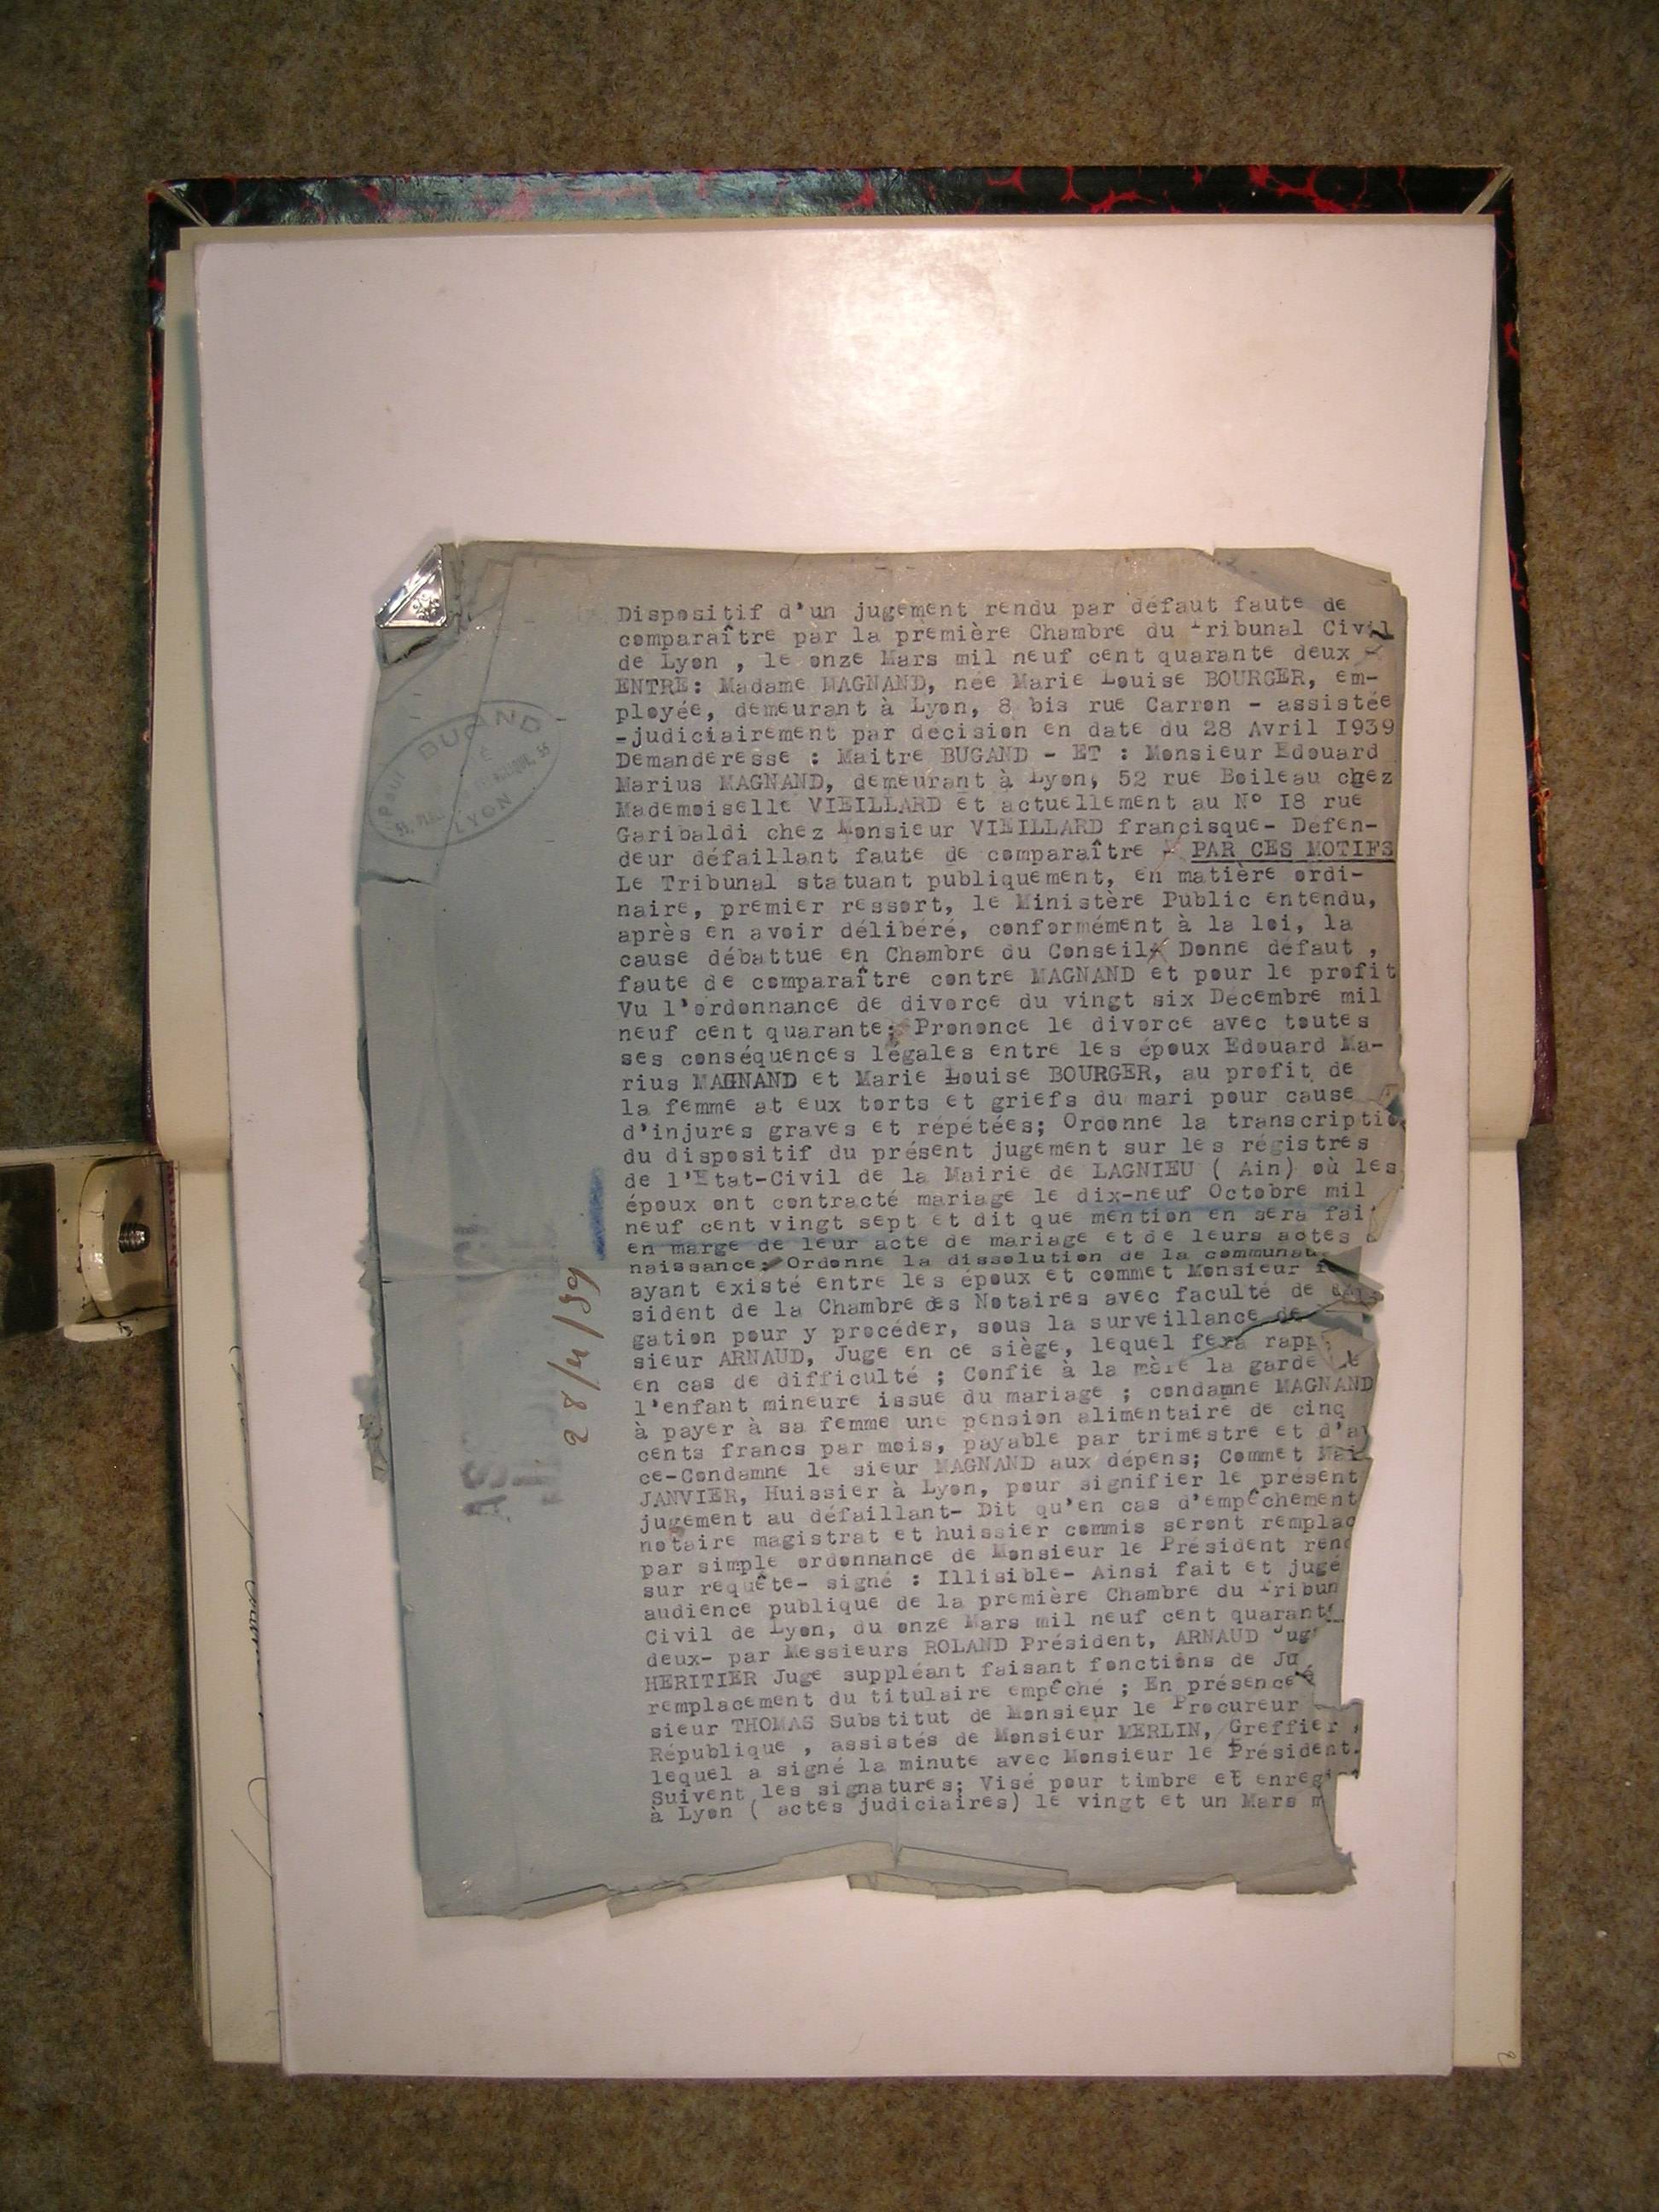 Dispositif d'un jugement rendu par défaut faute de
comparaître par la première Chambre du Tribunal Civil
de Lyon , le onze Mars mil neuf cent quarante deux -
ENTRE: Madame MAGNAND, née Marie Louise BOURGER, em-
ployée, demeurant à Lyon, 8 bis rue Carron - assistée
-judiciairement par décision en date du 28 Avril I939
Demanderesse : Maitre BUGAND - ET : Monsieur Edouard
Marius MAGNAND, demeurant à Lyon, 52 rue Boileau chez
Mademoiselle VIEILLARD et actuellement au N° I8 rue
Garibaldi chez Monsieur VIEILLARD francisque- Défen-
deur défaillant faute de comparaître - PAR CES MOTIFS
Le Tribunal statuant publiquement, en matière ordi-
naire, premier ressort, le Ministère Public entendu,
après en avoir délibéré, conformément à la loi, la
cause débattue en Chambre du Conseil Donne défaut ,
faute de comparaître contre MAGNAND et pour le profit
Vu l'ordonnance de divorce du vingt six Décembre mil
neuf cent quarante; Prononce le divorce avec toutes
ses conséquences légales entre les époux Edouard Ma-
rius MAGNAND et Marie Louise BOURGER, au profit de
la femme at eux torts et griefs du mari pour cause
d'injures graves et répétées; Ordonne la transcriptio
du dispositif du présent jugement sur les régistres
de l'Etat-Civil de la Mairie de LAGNIEU ( Ain) où les
époux ont contracté mariage le dix-neuf Octobre mil
neuf cent vingt sept et dit que mention en sera fai
en marge de leur acte de mariage et de leurs actes
naissance; Ordonne la dissolution de la communau
ayant existé entre les époux et commet Monsieur
sident de la Chambre des Notaires avec faculté de
gation pour y procéder, sous la surveillance de
sieur ARNAUD, Juge en ce siège, lequel fera rapp
en cas de difficulté ; Confie à la mère la garde de
l'enfant mineure issue du mariage ; condamne MAGNAND
à payer à sa femme une pension alimentaire de cinq
cents francs par mois, payable par trimestre et d'a
ce-Condamne le sieur MAGNAND aux dépens; Commet Mai
JANVIER, Huissier à Lyon, pour signifier le présent
jugement au défaillant- Dit qu'en cas d'empêchement
notaire magistrat et huissier commis seront remplac
par simple ordonnance de Monsieur le Président rend
sur requête- signé : Illisible- Ainsi fait et jugé
audience publique de la première Chambre du Tribun
Civil de Lyon, du onze Mars mil neuf cent quarant
deux- par Messieurs ROLAND Président, ARNAUD Jug
HERITIER Juge suppléant faisant fonctions de Ju
remplacement du titulaire empêché ; En présence
sieur THOMAS Substitut de Monsieur le Procureur
République , assistés de Monsieur MERLIN, Greffier ,
lequel a signé la minute avec Monsieur le Président.
Suivent les signatures; Visé pour timbre et enregis
à Lyon ( actes judiciaires) le vingt et un Mars m
Paul BUGAND
LYON
28/4/39